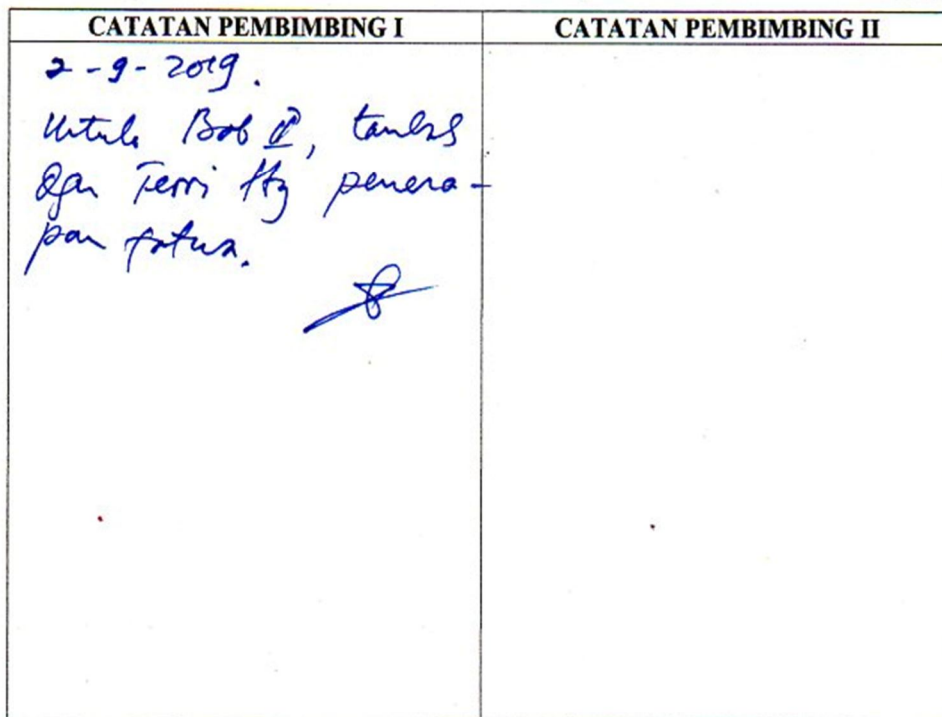 CATATAN PEMBIMBING I
CATATAN PEMBIMBING II
2-9-2019.
Untuk Bab II,
dgn Teori ttg penera-
pan fatwa.